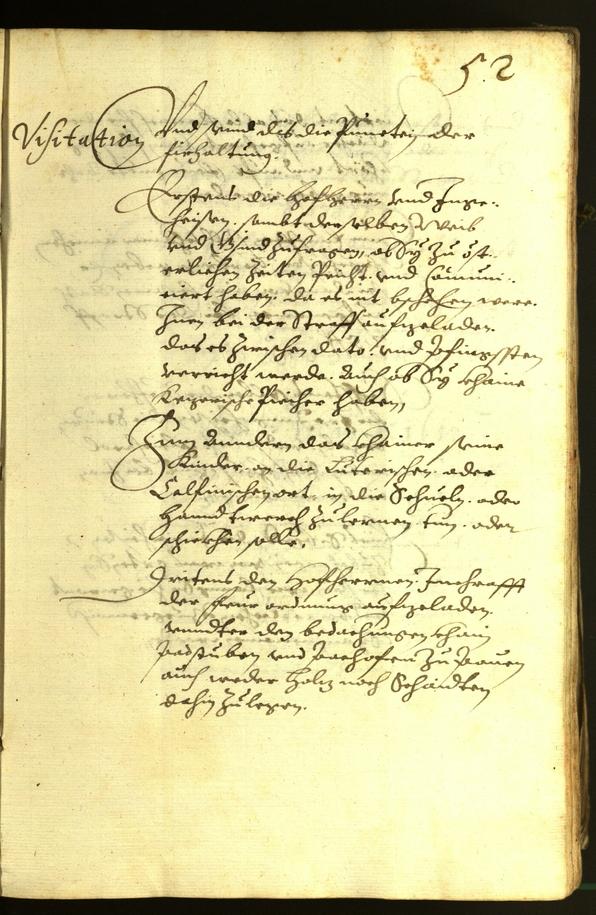 52
Visitation
Und seind dis die Puncten der
fürhaltung.
Erstens die hofherrn und Inge-
heisen. sambt derselben Weib
und Gesind zufragen, ob Sy zu öst-
erlichen Zeiten Peicht. und Comuni-
ciert haben. da es nit beschehen were.
Inen bei der Straff aufgeladen.
das es zwischen dato. und Pfingssten
verricht werde. Auch ob Sy khaine
Kezerische Piecher haben,
Zum Anndern das khainer seine
Kinder. an die Luterischen. oder
Calfinischen ort. in die Schueln. oder
Hanndtwerch zu lernen. tun. oder
schickhen solle.
Dritens den Hofherrnen. In chrafft
der feur ordnung aufgeladen.
unndter den bedachungen khain
Padstuben und Pachofen zu Pauen
auch weder Holz noch Schaidten
dahin zulegen.